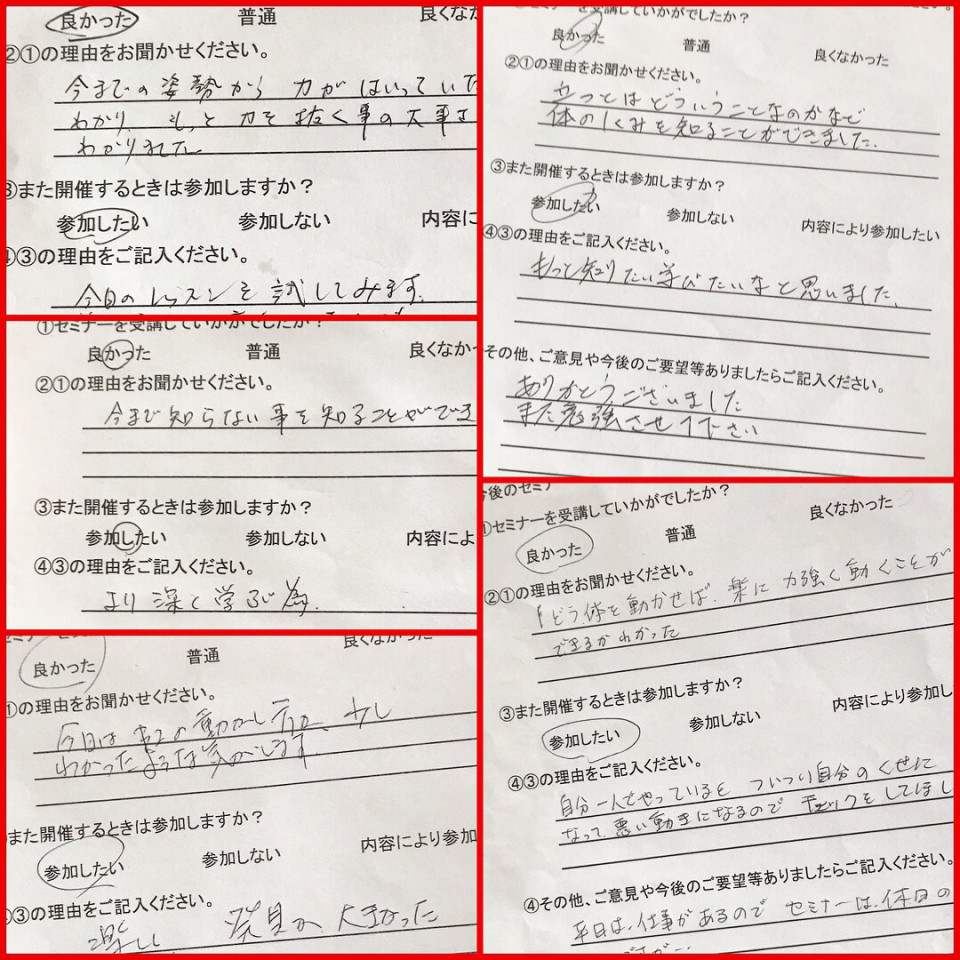 良かった 普通 良くなか
②①の理由をお聞かせください。
今までの姿勢から 力がはいっていた
わかり、もっと力を抜く事の大事さ
わかりました
③また開催するときは参加しますか？
参加したい 参加しない 内容に
④③の理由をご記入ください。
今日のレッスンを試してみます。
①セミナーを受講していかがでしたか？
良かった 普通 良くなか
②①の理由をお聞かせください。
今まで知らない事を知ることができ
③また開催するときは参加しますか？
参加したい 参加しない 内容によ
④③の理由をご記入ください。
より深く学ぶ為、
良かった 普通 良くなかった
①の理由をお聞かせください。
今日は 動かし方が、少し
わかったような気がします
また開催するときは参加しますか？
参加したい 参加しない 内容により参加
③の理由をご記入ください。
楽しい 発見が大きかった
セミナーを受講していかがでしたか？
良かった 普通 良くなかった
②①の理由をお聞かせください。
立つとはどういうことなのかなど
体のしくみを知ることができました。
③また開催するときは参加しますか？
参加したい 参加しない 内容により参加したい
④③の理由をご記入ください。
もっと知りたい学びたいなと思いました。
その他、ご意見や今後のご要望等ありましたらご記入ください。
ありがとうございました
また勉強させて下さい
今後のセミナ
①セミナーを受講していかがでしたか？
良かった 普通 良くなかった
②①の理由をお聞かせください。
どう体を動かせば、楽に力強く動くことが
できるかわかった
③また開催するときは参加しますか？
参加したい 参加しない 内容により参加し
④③の理由をご記入ください。
自分一人でやっていると ついつい自分のくせに
なって、悪い動きになるので チェックをしてほし
④その他、ご意見や今後のご要望等ありましたらご記入ください。
平日は、仕事があるので セミナーは、休日の